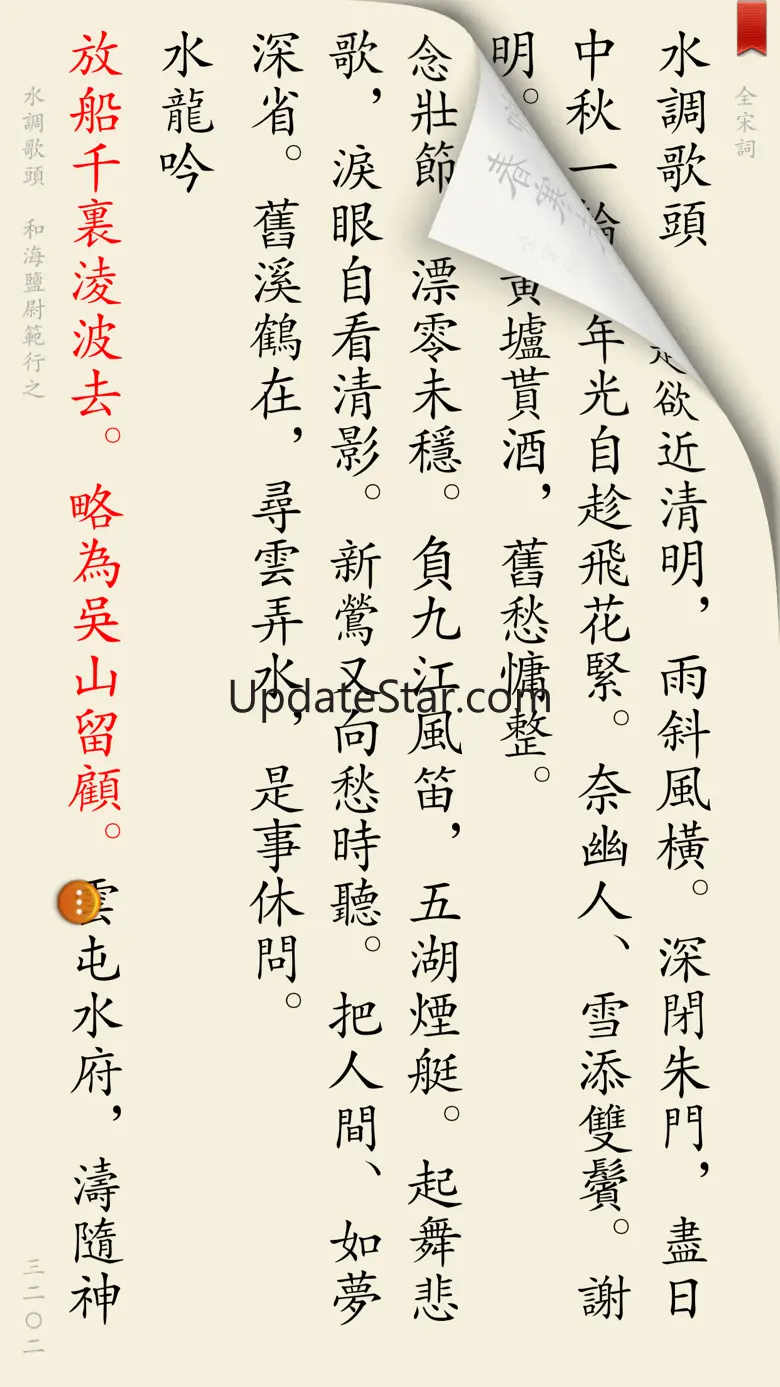 全宋詞
水調歌頭 欲近清明，雨斜風橫。深閉朱門，盡日
中秋一 年光自趁飛花緊。奈幽人、雪添雙鬢。謝
明。 黃壚貰酒，舊愁慵整。
念壯節 漂零未穩。負九江風笛，五湖煙艇。起舞悲
歌，淚眼自看清影。新鶯又向愁時聽。把人間、如夢
深省。舊溪鶴在，尋雲弄水，是事休問。
水龍吟
放船千裏淩波去。略為吳山留顧。雲屯水府，濤隨神
水調歌頭 和海鹽尉範行之
三二〇二
春寒
UpdateStar.com